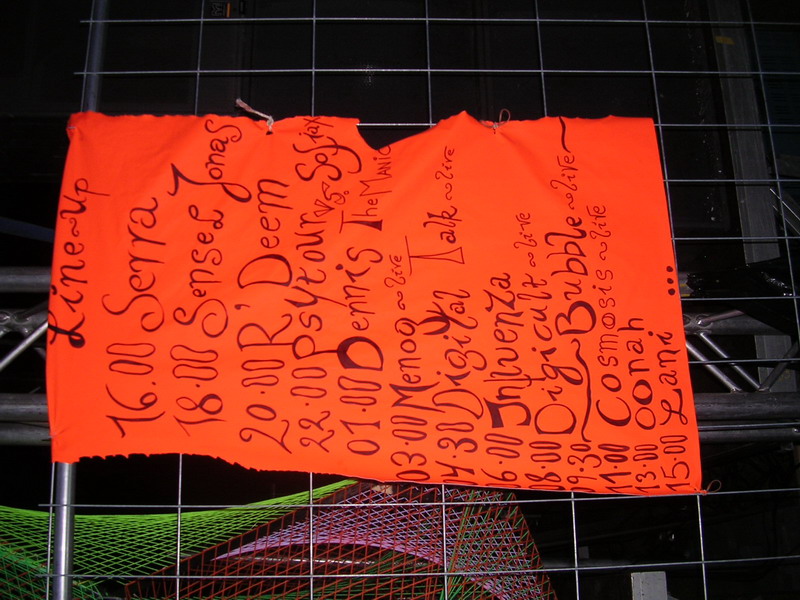 Line~Up
16.00 Serra
18.00 Sensel Jonas
20.00 R'Deem
22.00 Psytour vs. Sofjax
01.00 Dennis The MANIC
03.00 Menog ~live
04.30 Digital Talk ~live
06.00 Influenza
08.00 Digicult ~live
9.30 Bubble ~live
11.00 Cosmosis ~live
13.00 oonah
15.00 Lani ...